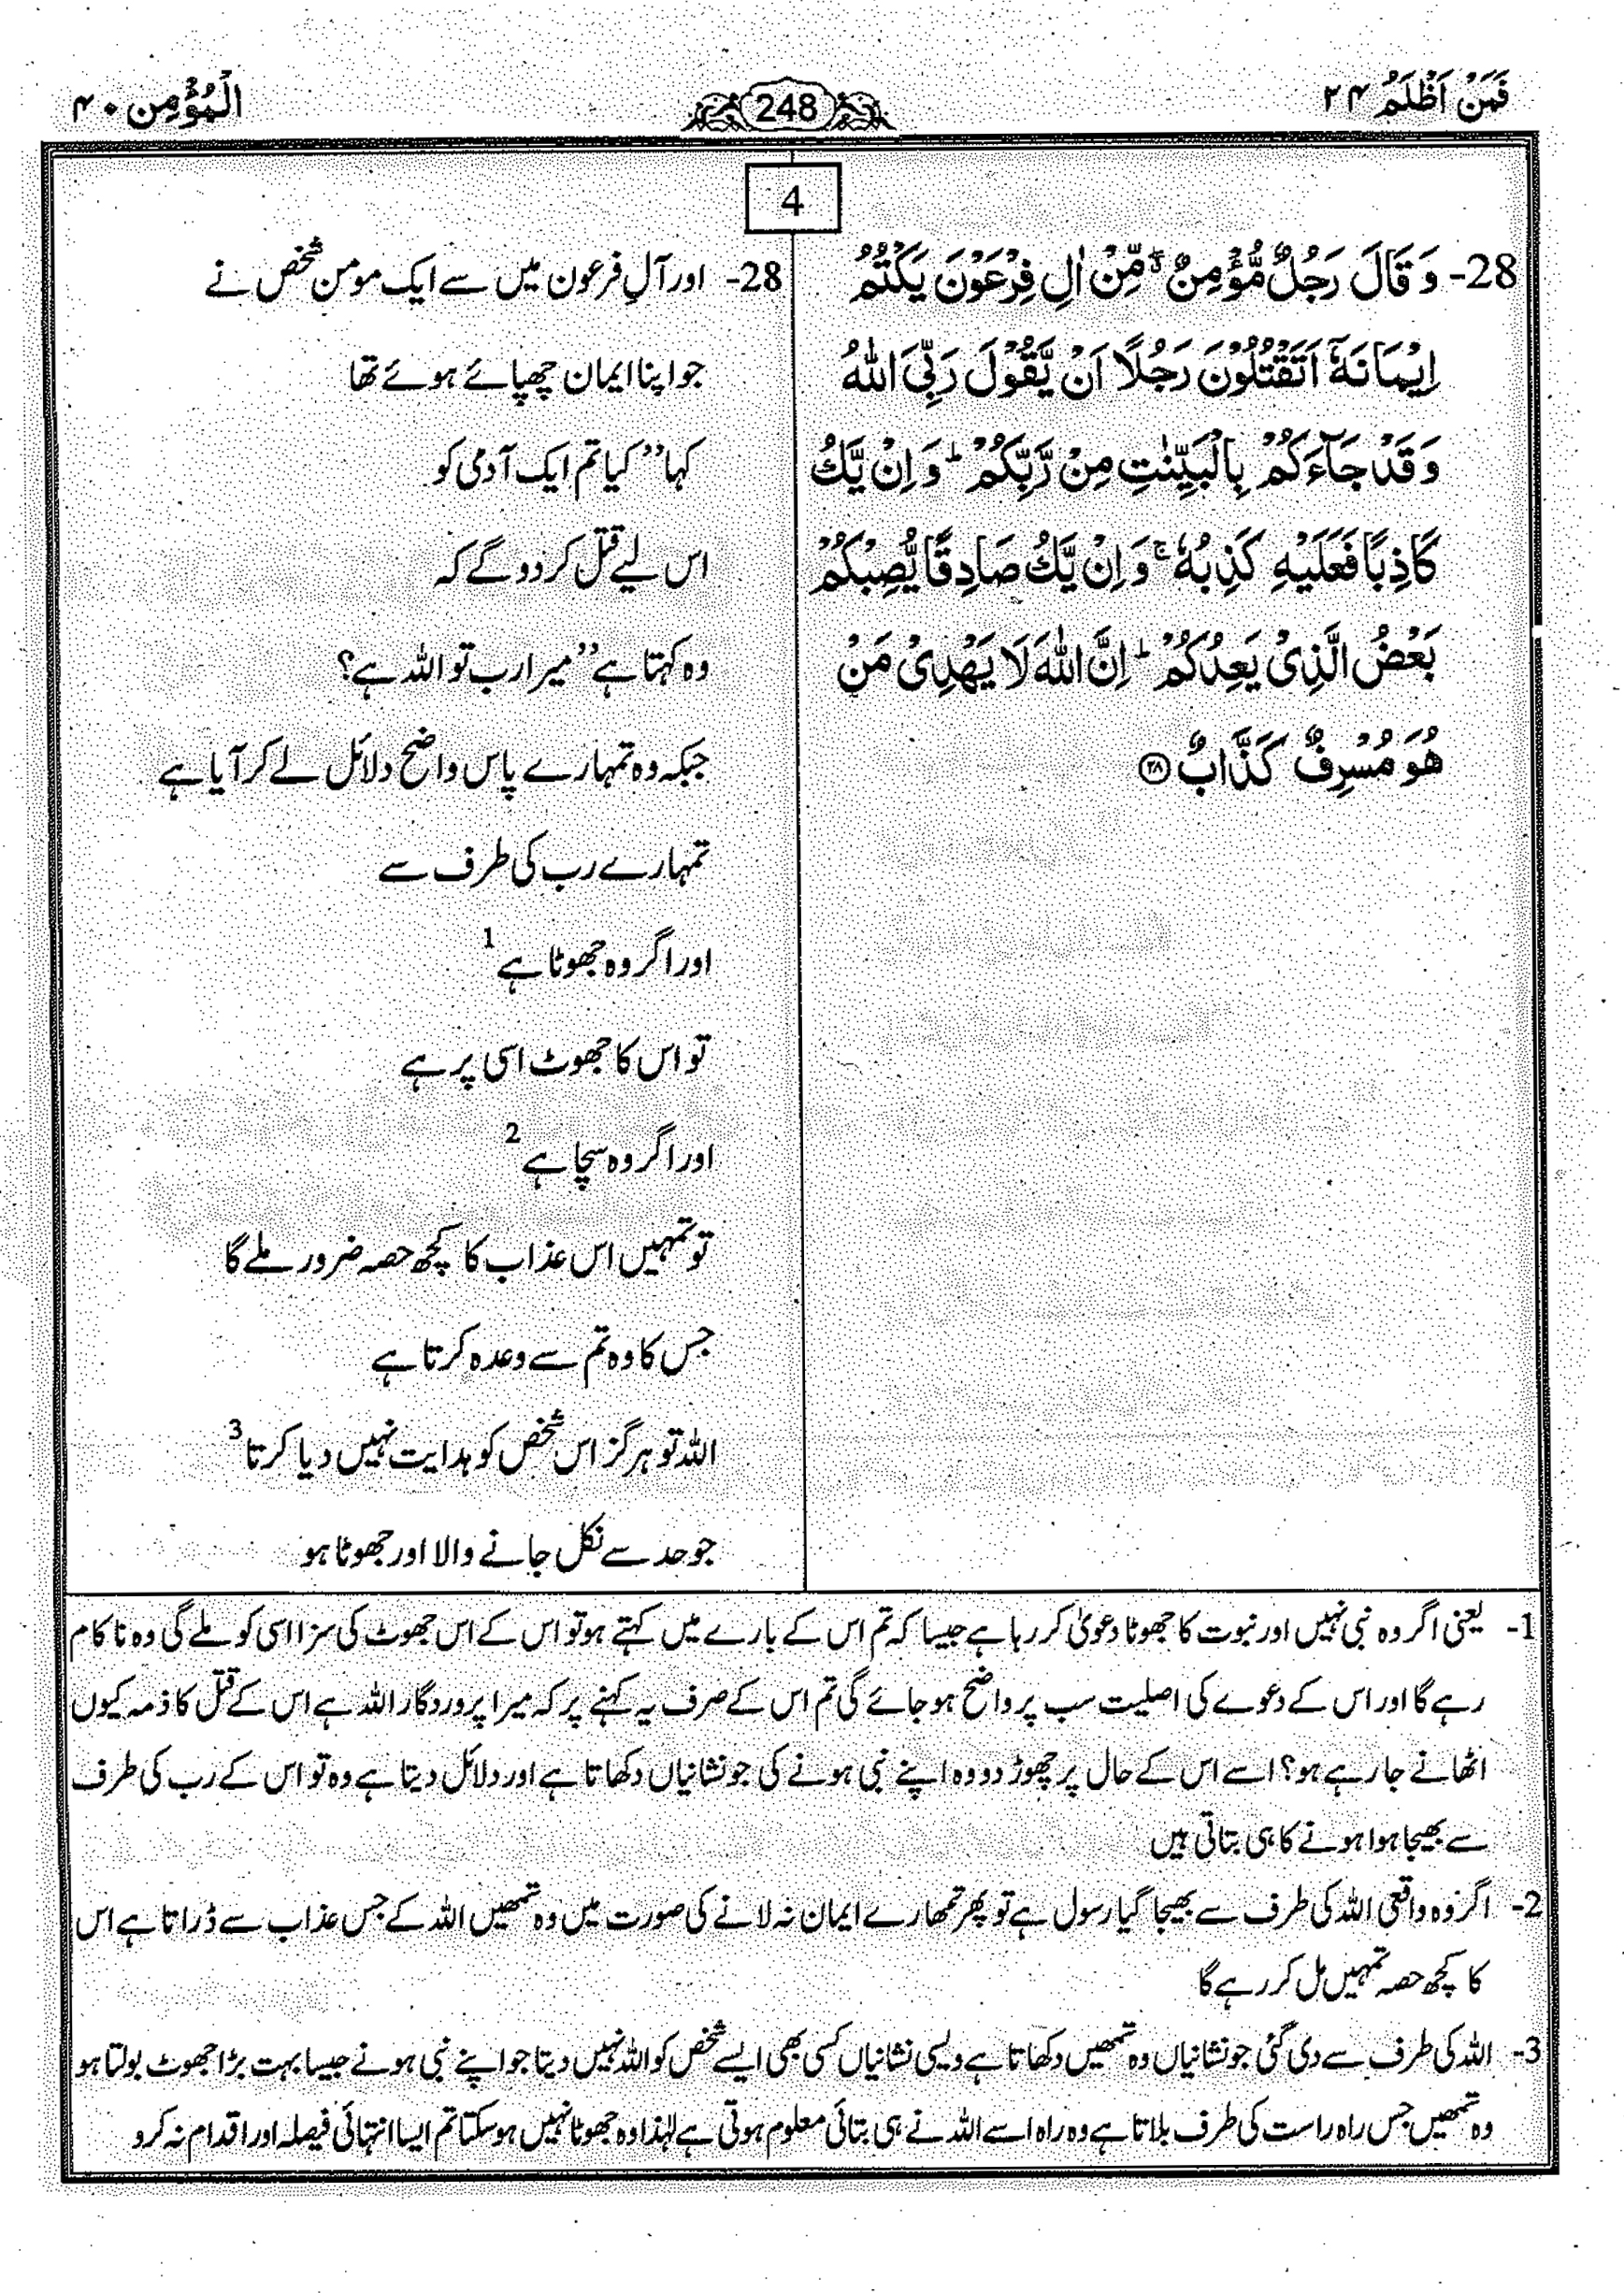 فَمَنْ اَظْلَمُ ۲۴
248
الْمُؤْمِن ۴۰
4
28- وَ قَالَ رَجُلٌ مُّؤْمِنٌ ۖۗ مِّنْ اٰلِ فِرْعَوْنَ يَكْتُمُ
اِيْمَانَهٗۤ اَتَقْتُلُوْنَ رَجُلًا اَنْ يَّقُوْلَ رَبِّيَ اللّٰهُ
وَ قَدْ جَآءَكُمْ بِالْبَيِّنٰتِ مِنْ رَّبِّكُمْ ؕ وَ اِنْ يَّكُ
كَاذِبًا فَعَلَيْهِ كَذِبُهٗ ۚ وَ اِنْ يَّكُ صَادِقًا يُّصِبْكُمْ
بَعْضُ الَّذِيْ يَعِدُكُمْ ؕ اِنَّ اللّٰهَ لَا يَهْدِيْ مَنْ
هُوَ مُسْرِفٌ كَذَّابٌ ۝۲۸
28- اور آلِ فرعون میں سے ایک مومن شخص نے
جو اپنا ایمان چھپائے ہوئے تھا
کہا ’’کیا تم ایک آدمی کو
اس لیے قتل کر دو گے کہ
وہ کہتا ہے ’’میرا رب تو اللہ ہے؟
جبکہ وہ تمہارے پاس واضح دلائل لے کر آیا ہے
تمہارے رب کی طرف سے
اور اگر وہ جھوٹا ہے 1
تو اس کا جھوٹ اسی پر ہے
اور اگر وہ سچا ہے 2
تو تمہیں اس عذاب کا کچھ حصہ ضرور ملے گا
جس کا وہ تم سے وعدہ کرتا ہے
اللہ تو ہرگز اس شخص کو ہدایت نہیں دیا کرتا 3
جو حد سے نکل جانے والا اور جھوٹا ہو
1- یعنی اگر وہ نبی نہیں اور نبوت کا جھوٹا دعویٰ کر رہا ہے جیسا کہ تم اس کے بارے میں کہتے ہو تو اس کے اس جھوٹ کی سزا اسی کو ملے گی وہ ناکام
رہے گا اور اس کے دعوے کی اصلیت سب پر واضح ہو جائے گی تم اس کے صرف یہ کہنے پر کہ میرا پروردگار اللہ ہے اس کے قتل کا ذمہ کیوں
اٹھانے جا رہے ہو؟ اسے اس کے حال پر چھوڑ دو وہ اپنے نبی ہونے کی جو نشانیاں دکھاتا ہے اور دلائل دیتا ہے وہ تو اس کے رب کی طرف
سے بھیجا ہوا ہونے کا ہی بتاتی ہیں
2- اگر وہ واقعی اللہ کی طرف سے بھیجا گیا رسول ہے تو پھر تمھارے ایمان نہ لانے کی صورت میں وہ تمھیں اللہ کے جس عذاب سے ڈراتا ہے اس
کا کچھ حصہ تمہیں مل کر رہے گا
3- اللہ کی طرف سے دی گئی جو نشانیاں وہ تمھیں دکھاتا ہے ویسی نشانیاں کسی بھی ایسے شخص کو اللہ نہیں دیتا جو اپنے نبی ہونے جیسا بہت بڑا جھوٹ بولتا ہو
وہ تمھیں جس راہ راست کی طرف بلاتا ہے وہ راہ اسے اللہ نے ہی بتائی معلوم ہوتی ہے لہٰذا وہ جھوٹا نہیں ہو سکتا تم ایسا انتہائی فیصلہ اور اقدام نہ کرو